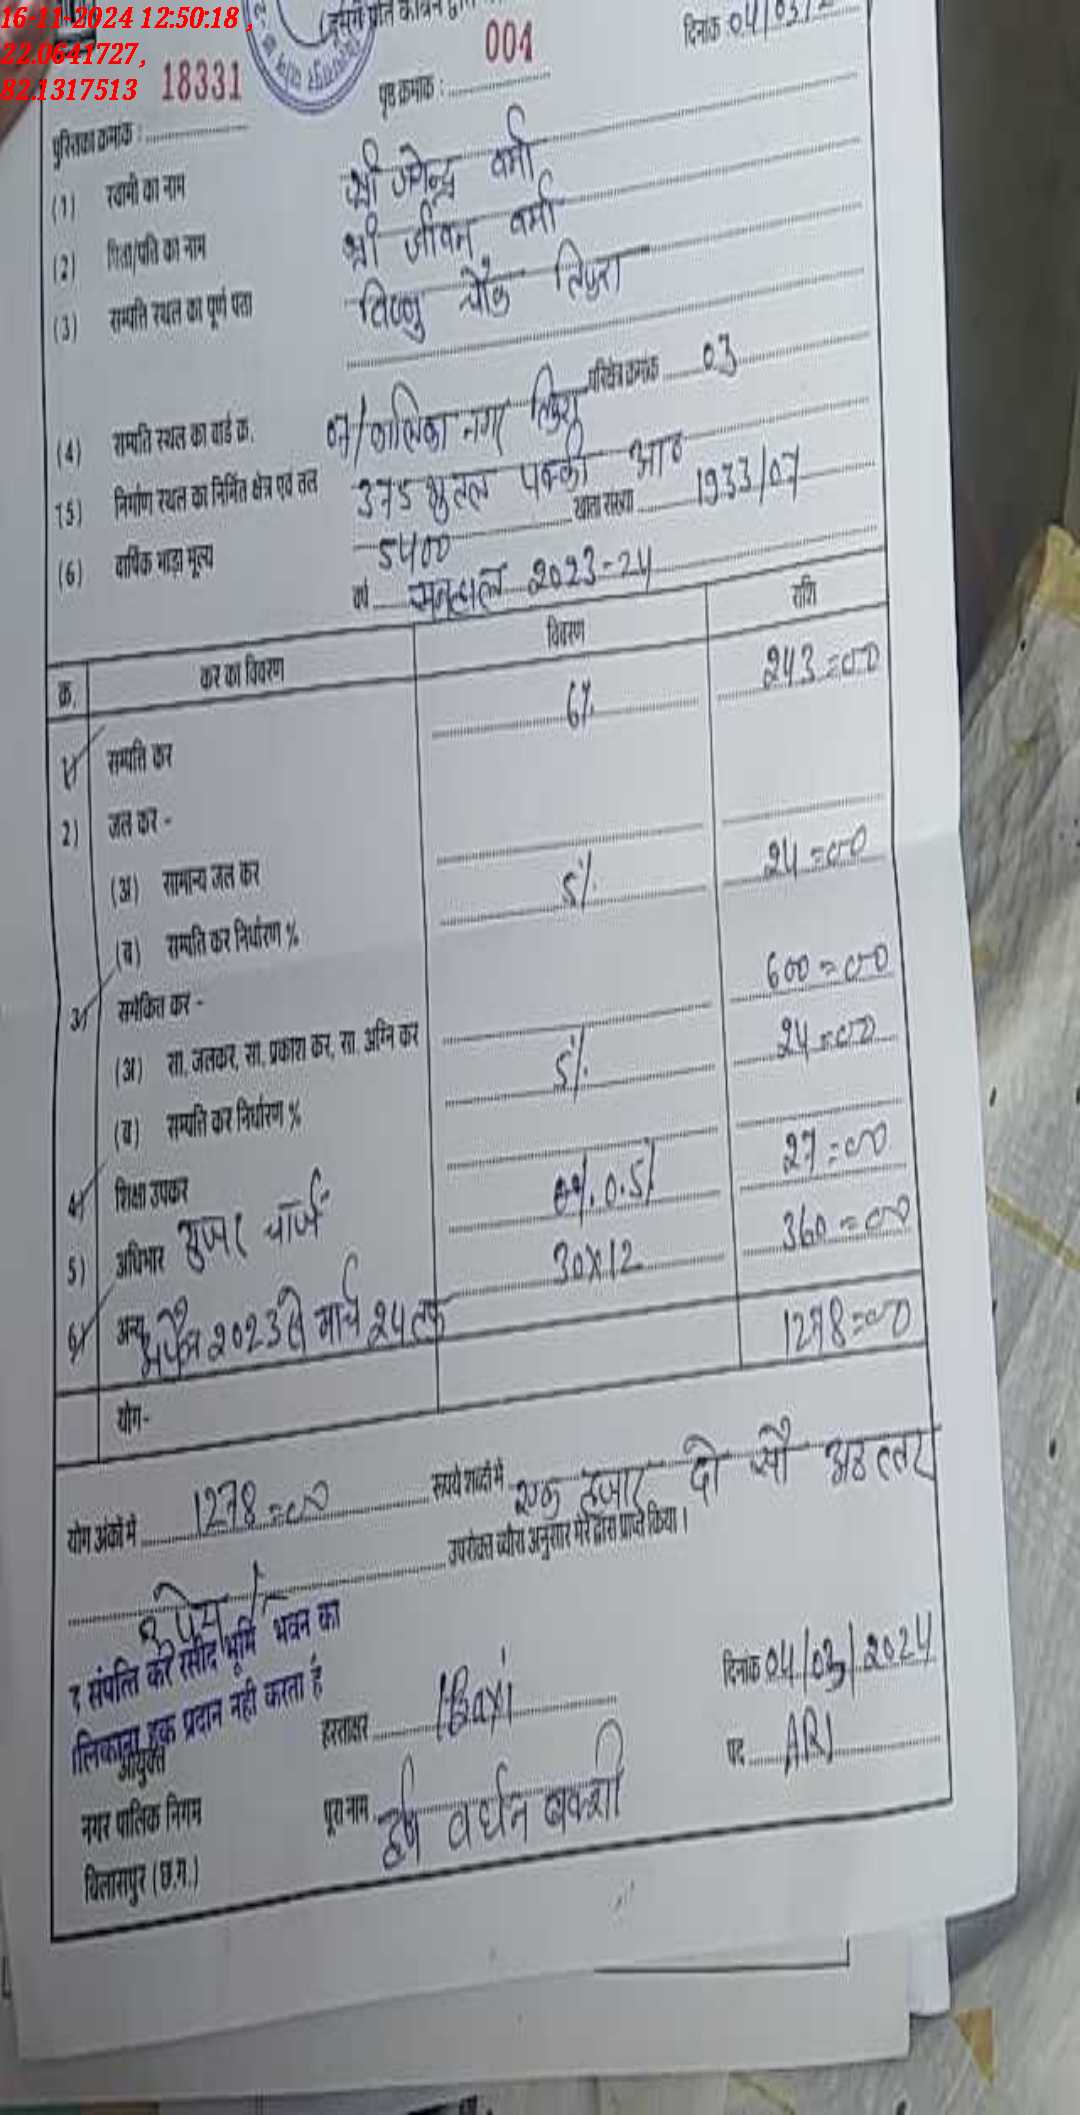 16-11-2024 12:50:18 ,
22.0641727 ,
82.1317513
दिनांक 04/03/2
पुस्तिका क्रमांक : 18331 पृष्ठ क्रमांक : 004
(1) स्वामी का नाम श्री जगेन्द्र वर्मा
(2) पिता/पति का नाम श्री जीवन वर्मा
(3) सम्पत्ति स्थल का पूर्ण पता विष्णु चौक तिफरा
(4) सम्पत्ति स्थल का वार्ड क्र. 07/कालिका नगर तिफरा परिक्षेत्र क्रमांक 03
(5) निर्माण स्थल का निर्मित क्षेत्र एवं तल 375 भुतल पक्की आठ
(6) वार्षिक भाड़ा मूल्य 5400 खाता संख्या 1933/07
वर्ष 2023-24
क्र. कर का विवरण विवरण राशि
1) सम्पत्ति कर 6% 243=00
2) जल कर -
(अ) सामान्य जल कर
(ब) सम्पत्ति कर निर्धारण % 5% 24=00
3) समेकित कर -
(अ) सा. जलकर, सा. प्रकाश कर, सा. अग्नि कर 600=00
(ब) सम्पत्ति कर निर्धारण % 5% 24=00
4) शिक्षा उपकर 0.5% 27=00
5) अधिभार युजर चार्ज 30x12 360=00
6) अन्य अप्रैल 2023 से मार्च 24 तक
योग- 1278=00
योग अंकों में 1278=00 रूपये शब्दों में एक हजार दो सौ अठत्तर
रूपये उपरोक्त ब्यौरा अनुसार मेरे द्वारा प्राप्त किया ।
संपत्ति कर रसीद भूमि भवन का
लिकाना हक प्रदान नही करता है
आयुक्त
नगर पालिक निगम
बिलासपुर (छ.ग.)
हस्ताक्षर Baxi
दिनांक 04/03/2024
पूरा नाम हर्ष वर्धन बक्शी
पद ARI